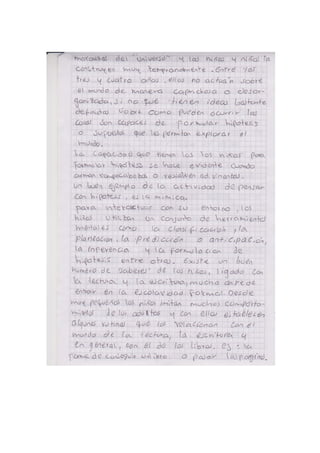 del "universo" y las niñas y niños la
construyen muy tempranamente. Entre los
tres y cuatro años, ellos no actúan sobre
el mundo de manera caprichosa o desor-
ganizada, si no que tienen ideas bastante
definidas sobre como pueden ocurrir las
cosas son capaces de formular hipotesis
o supuestos que le permitan explorar el
mundo.
La capacidad que tienen los los niños para
formular hipotesis se hace evidente cuando
arman rompecabezas o resuelven adivinanzas.
un buen ejemplo de la actividad de pensar
con hipotesis, es la mimica.
para interactuar con su entorno, los
niños utilizan un conjunto de herramientas
mentales como la clasificación, la
planeación, la predicción o anticipación,
la inferencia y la formulación de
hipotesis entre otros. Existe un buen
numero de saberes de los niños, ligado con
la lectura y la escritura, mucho antes de
entrar en la escolaridad formal. Desde
muy pequeños los niños imitan muchos comporta-
mientos de los adultos y con ellos establecen
algunas rutinas que los relacionan con el
mundo de la lectura, la escritura y
en general, con el de los libros. ej: la
forma de coger un libro o pasar las paginas.